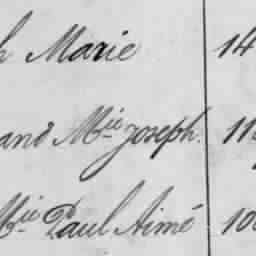 h Marie 14
and M.ie Joseph. 11
M.ie Paul Aimé 10